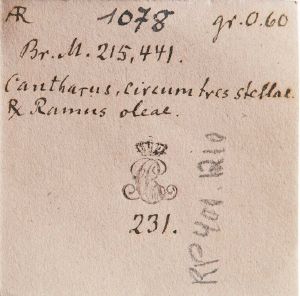 AR 1078 gr. 0.60
Br. M. 215,441.
Cantharus, circum tres stellae.
℞ Ramus oleae.
231.
RP401.1210